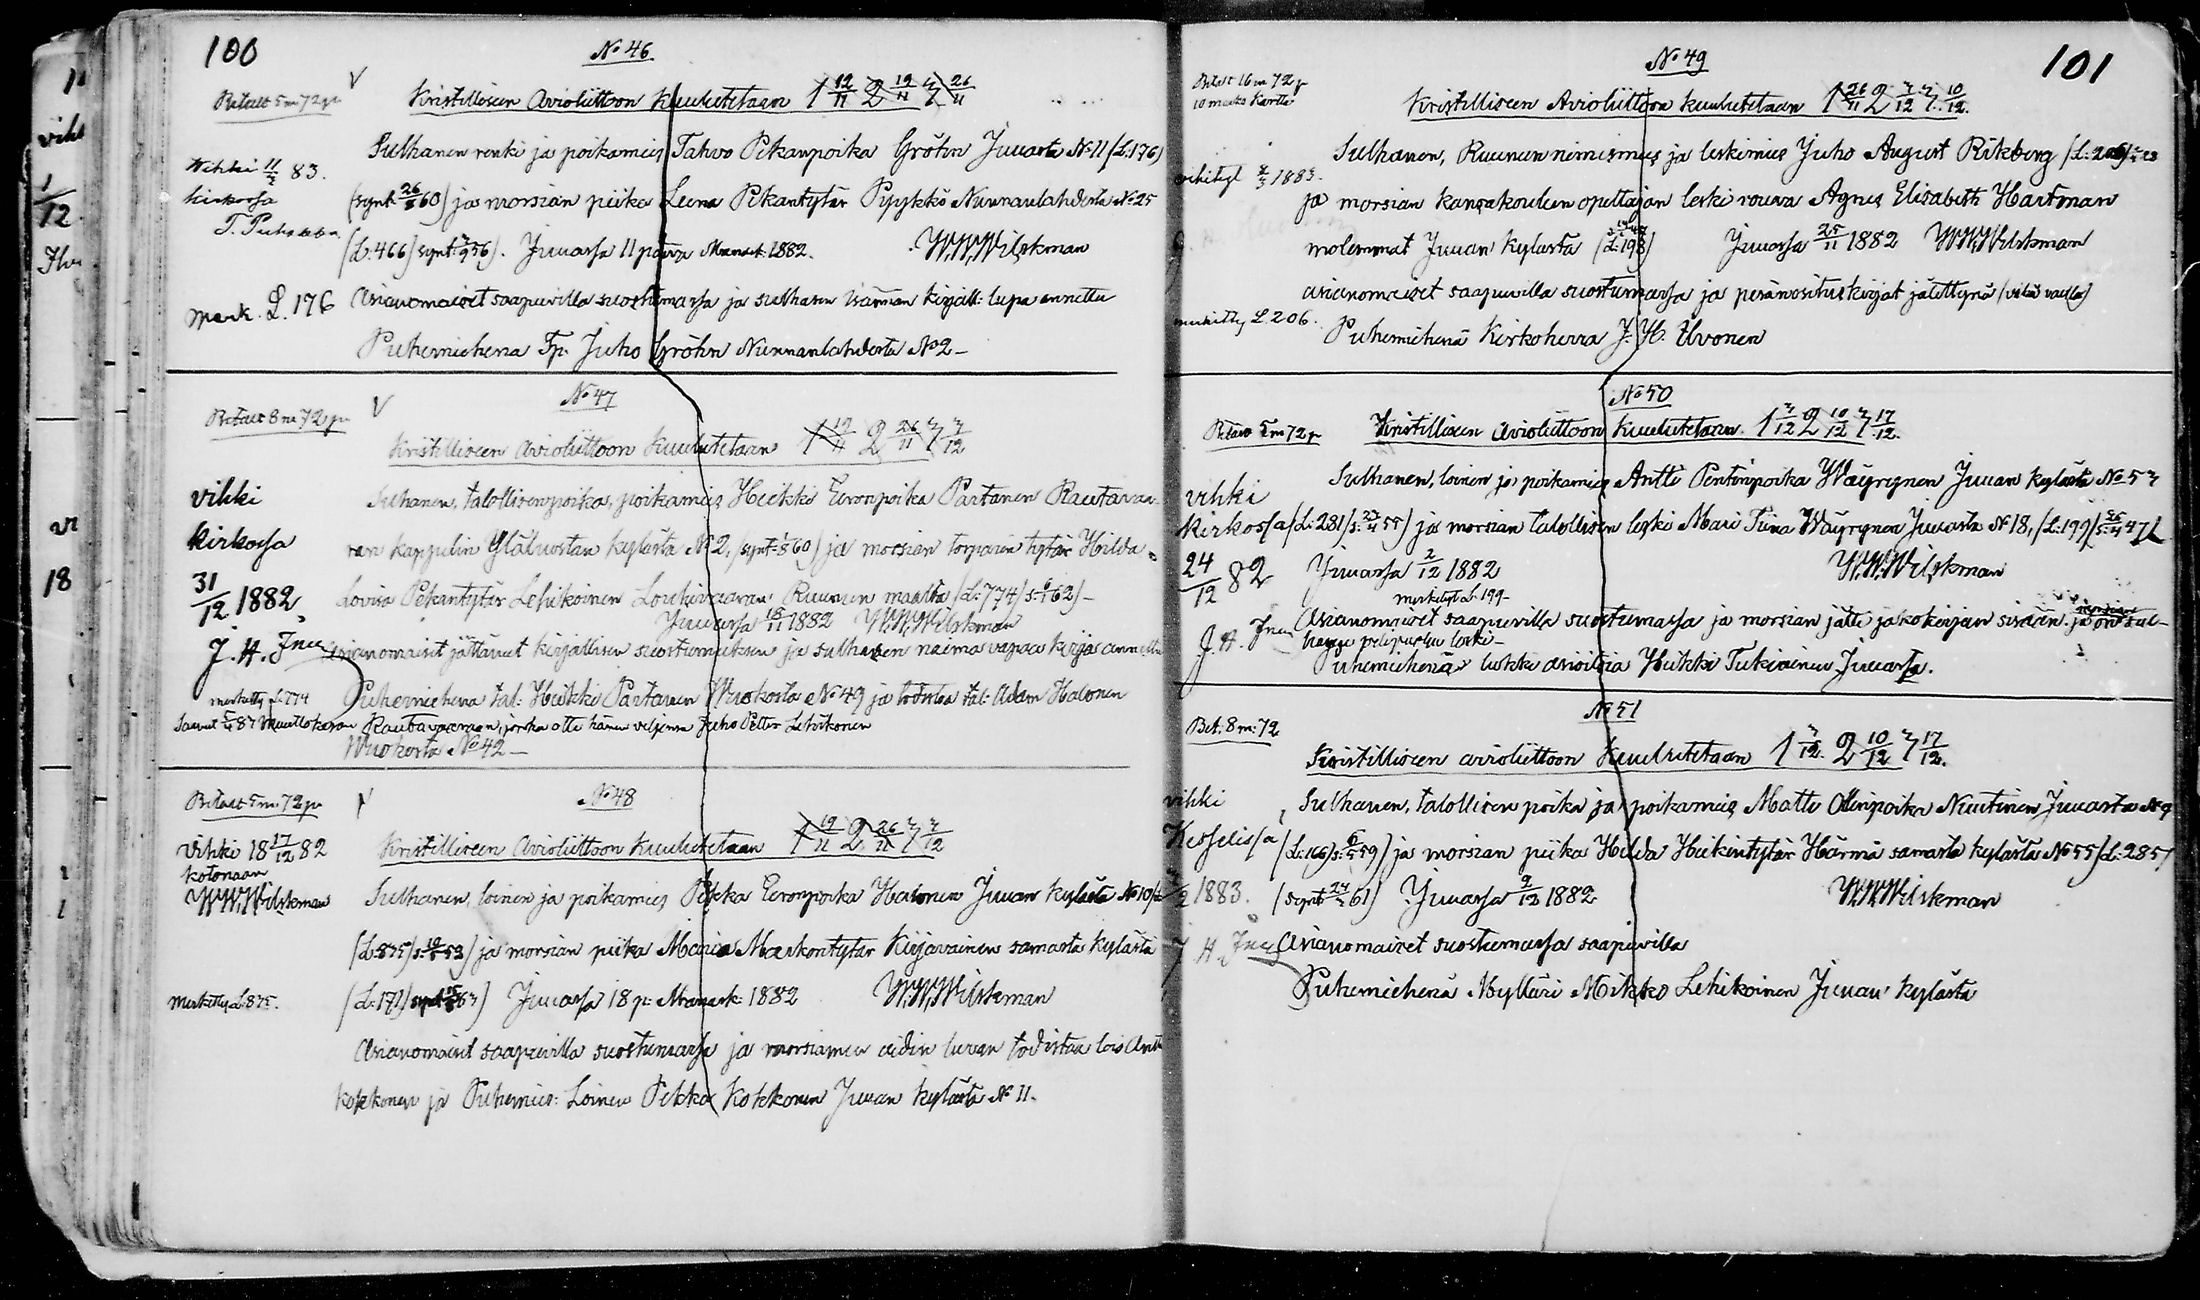 100
No 46.
Betalt 5 m 72 p
Kristilliseen Avioliittoon Kuulutetaan 1 12/11 2 19/11 3 26/11
Sulhanen renki ja poikamies Tahvo Pekanpoika Gröhn Juuasta No 11 (L:176)
Wihki 11/2 83.
kirkossa
(synt. 26/8 60) ja morsian piika Leena Pekantytär Pyykkö Nunnanlahdesta No 25
(L:466) synt. 56). Juuassa 11 päivä Marrask. 1882. W.W.Wilskman
merk. L. 176
Asianomaiset saapuvilla suostumassa ja sulhasen isännän kirjall: lupa annettu
Puhemiehenä Tp. Juho Gröhn Nunnanlahdesta No 2 –
No 47
Betalt 8 m 72 p
Kristilliseen Avioliittoon Kuulutetaan 1 19/11 2 26/11 3 3/12
vihki
kirkossa
31/12 1882
J. H.
Sulhanen, talollisenpoika, poikamies Heikki Eeronpoika Partanen Rautavaa-
ran kappelin Yläluostan kylästä No 2, (synt. 60) ja morsian torparin tytär Hilda
Lovisa Pekantytär Lehikoinen Louhivaaran Ruunun maalta (L:774) 62) –
Juuassa 18/11 1882 W.W.Wilskman
Asianomaiset jättäneet kirjallisen suostumuksen ja sulhasen naima vapaa kirja annettu
merkitty L:774
Puhemiehenä tal: Heikki Partanen Wuokosta No 49 ja todistaa tal: Adam Halonen
87 Muuttokirjan Rautavaaraan, jonka otti hänen veljensä Juho Petter Lehikoinen
Wuokosta No 42 –
No 48
Betalt 5 m 72 p
vihki 18 17/12 82
kotonaan
W.W.Wilskman
Kristilliseen Avioliittoon Kuulutetaan 1 19/11 2 26/11 3 3/12
Sulhanen, loinen ja poikamies Pekka Eeronpoika Halonen Juuan kylästä No 10
(L:875) ja morsian piika Maria Markontytär Kirjavainen samasta kylästä
Merkitty L:875.
(L:171) Juuassa 18 p: Marrask: 1882 W.W.Wilskman
Asianomaiset saapuvilla suostumassa ja morsiamen äidin luvan todistaa lois Antti
Kokkonen ja Puhemies: Loinen Pekka Kokkonen Juuan kylästä No 11.
101
No 49
Betalt 16 m 72 p
10 marko Kartta
Kristilliseen Avioliittoon kuulutetaan 1 26/11 2 3/12 3 10/12.
Sulhanen, Ruunun nimismies ja leskimies Juho August Rikberg
vihityt 1883.
ja morsian kansakoulun opettajan leski rouva Agnes Elisabeth Hartman
molemmat Juuan kylästä (L:198) Juuassa 25/11 1882 W.W.Wilskman
asianomaiset saapuvilla suostumassa ja perännösituskirjat jätettynä
merkitty L 206.
Puhemiehenä Kirkoherra J. H. Uvonen
No 50
Betalt 5 m 72 p
Kristilliseen Avioliittoon Kuulutetaan. 1 3/12 2 10/12 3 17/12.
vihki
kirkossa
24/12 82
J. H.
Sulhanen, loinen ja poikamies Antti Pentinpoika Wäyrynen Juuan kylästä No 53
(L:281) 55) ja morsian talollisen leski Mari Tiina Wäyrynen Juuasta No 18, (L:199)
Juuassa 2/12 1882 W.W.Wilskman
merkityt L: 199 –
Asianomaiset saapuvilla suostumassa ja morsian jätti jakokirjan
leski –
Puhemiehenä lukkari Heikki Tukiainen Juuassa.
No 51
Bet: 8 m: 72
Kristilliseen avioliittoon Kuulutetaan 1 3/12. 2 10/12 3 17/12.
vihki
1883.
J. H.
Sulhanen, talollisen poika ja poikamies Matti Ollinpoika Nuutinen Juuasta No 9
(L:166) 59) ja morsian piika Hilda Heikintytär Härmä samasta kylästä No 55 (L:285)
(synt. 61) Juuassa 9/12 1882 W.W.Wilskman
Asianomaiset suostumassa saapuvilla
Puhemiehenä Mylläri Mikko Lehikoinen Juuan kylästä